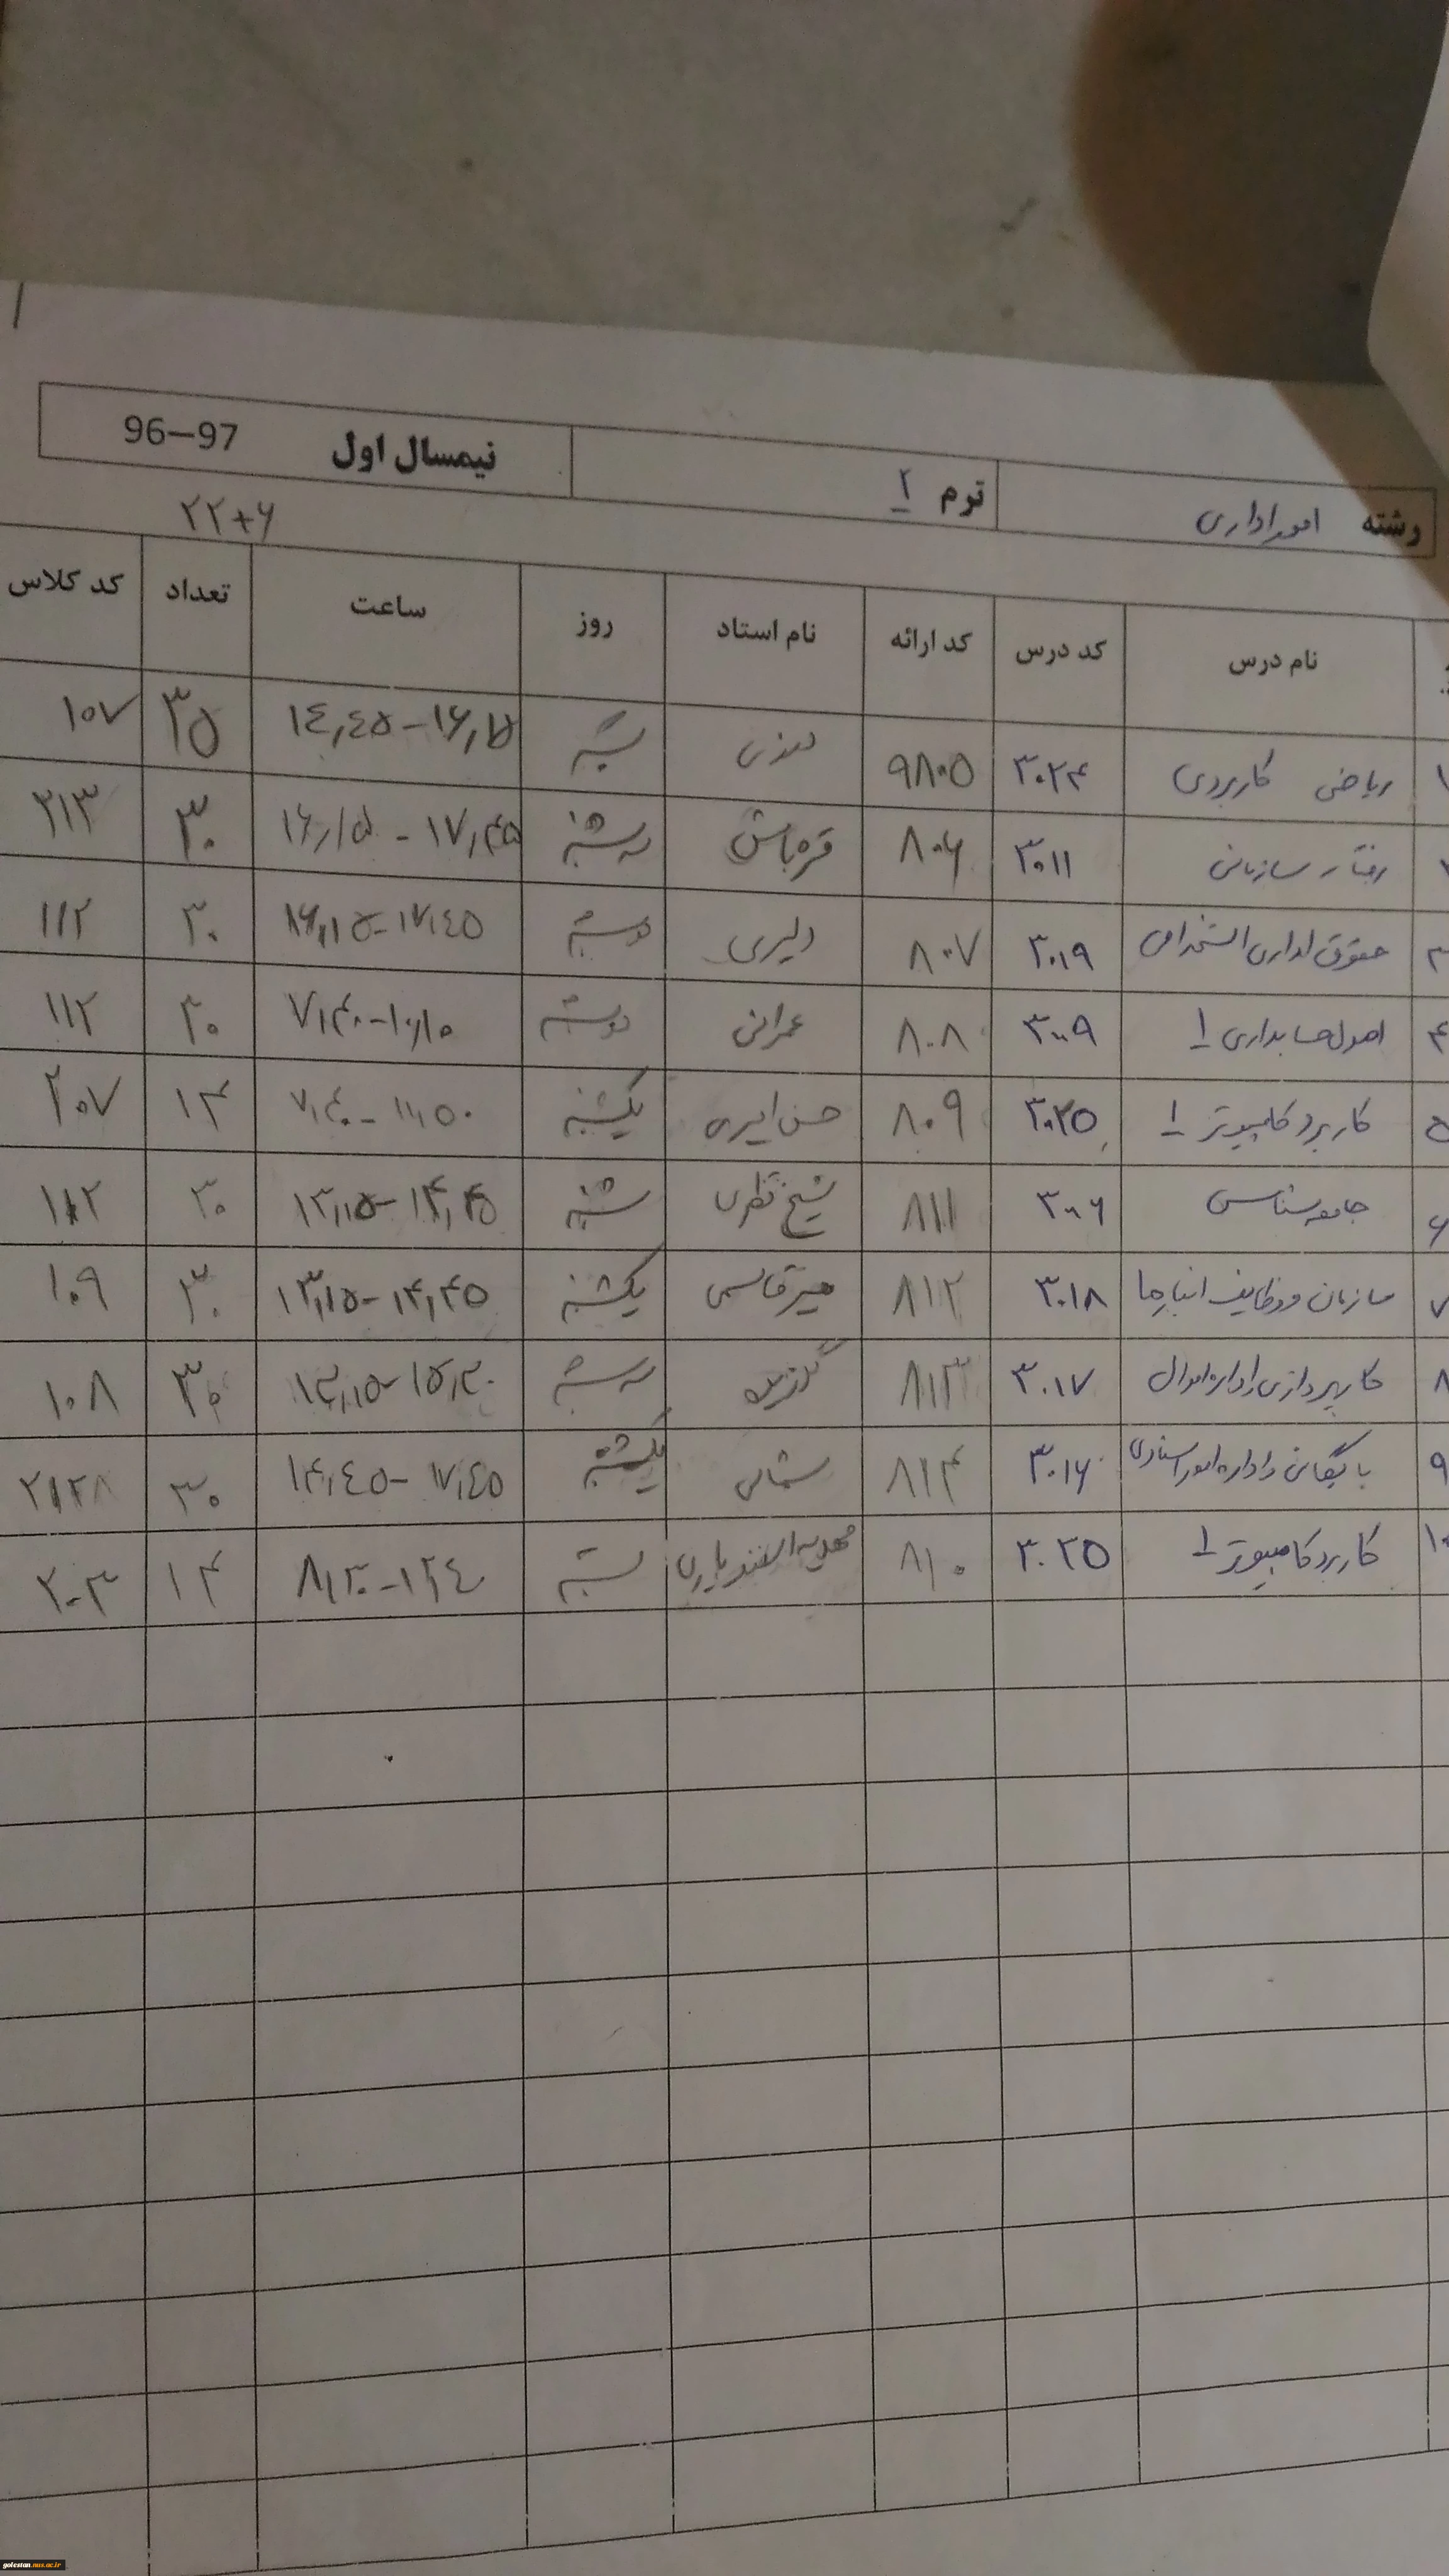 رشته امور اداری ترم ۲ نیمسال اول 96–97
۲۲+۶
نام درس کد درس کد ارائه نام استاد روز ساعت تعداد کد کلاس
ریاضی کاربردی ۳۰۲۴ ۹۸۰۵ ۱۴,۴۵-۱۶,۱۵ ۳۵ ۱۰۷
رفتار سازمانی ۳۰۱۱ ۸۰۶ قره باش سه شنبه ۱۶,۱۵ - ۱۷,۴۵ ۳۰ ۲۱۳
۳ حقوق اداری استخدامی ۳۰۱۹ ۸۰۷ دلیری دوشنبه ۱۶,۱۵-۱۷,۴۵ ۳۰ ۱۱۲
۴ اصول حسابداری ۱ ۳۰۰۹ ۸۰۸ عمرانی دوشنبه ۷,۴۰-۱۰,۱۰ ۳۰ ۱۱۲
۵ کاربرد کامپیوتر ۱ ۳۰۲۵ ۸۰۹ حسن امیری یکشنبه ۷,۴۰-۱۱,۵۰ ۱۴ ۲۰۷
۶ جامعه شناسی ۳۰۰۶ ۸۱۱ شیخ نظری شنبه ۱۳,۱۵-۱۴,۴۵ ۳۰ ۱۱۲
۷ سازمان و وظایف انبارها ۳۰۱۸ ۸۱۲ میرقاسمی یکشنبه ۱۳,۱۵-۱۴,۴۵ ۳۰ ۱۰۹
۸ کارپردازی و اداره اموال ۳۰۱۷ ۸۱۳ سه شنبه ۱۳,۱۵-۱۵,۳۰ ۳۰ ۱۰۸
۹ بایگانی و اداره امور اسنادی ۳۰۱۶ ۸۱۴ شمالی یکشنبه ۱۴,۴۵-۱۷,۴۵ ۳۰
۱۰ کاربرد کامپیوتر ۱ ۳۰۲۵ ۸۱۰ مهدیه اسفندیاری شنبه ۱۴ ۲۰۳
golestan.nus.ac.ir